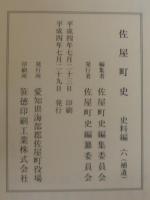 佐屋町史 史料編 六(補遺)
平成四年七月二十三日 印刷
平成四年七月二十九日 発行
編集者 佐屋町史編集委員会
発行者 佐屋町史編纂委員会
発行所 愛知県海部郡佐屋町役場
印刷所 笹徳印刷工業株式会社